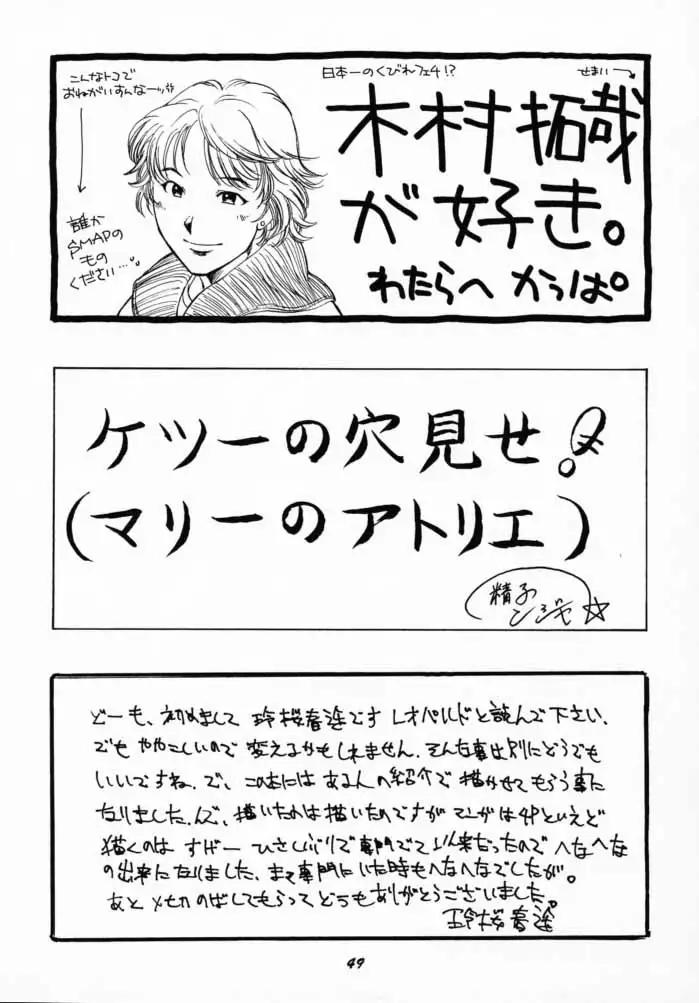 こんなトコで
おねがいすんなーッ!!
誰か
SMAPの
もの
ください…
日本一のくびれフェチ!?
せまい→
木村拓哉
が好き。
わたらへ かっぱ。
ケツーの穴見せ!
(マリーのアトリエ)
精子
ンジャ☆
どーも、初めまして 玲桜春途です レオパルドと読んで下さい、
でも ややこしいので 変えるかもしれません、そんな事は別にどうでも
いいですね、で、この本には ある人の紹介で 描かせてもらう事に
なりました、んで、描いたのは描いたのですが マンガは4Pといえど
描くのは すげー ひさしぶりで専門でて以来だったので へなへな
の出来になりました、まぁ専門にいた時もへなへなでしたが。
あと 〆切のばしてもらって どうもありがとうございました。
玲桜春途
49